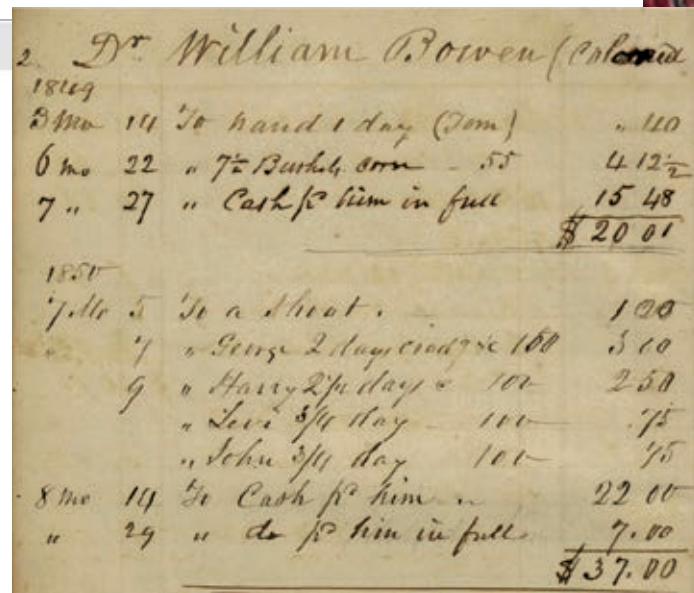 2 Dr William Bowen (Colored
1849
3 Mo 14 To hand 1 day (Tom) " 40
6 mo 22 " 7½ Bushels corn - 55 4 12½
7 " 27 " Cash pd him in full 15 48
$ 20 01
1850
7 Mo 5 To a Shoat. 1 20
" 7 " George 2 days 150 3 00
9 " Harry 2½ days 100 2 50
" Levi 3/4 day - 100 .75
" John 3/4 day 100 75
8 mo 14 To Cash pd him " 22 00
" 29 " do pd him in full 7.00
$ 37.00